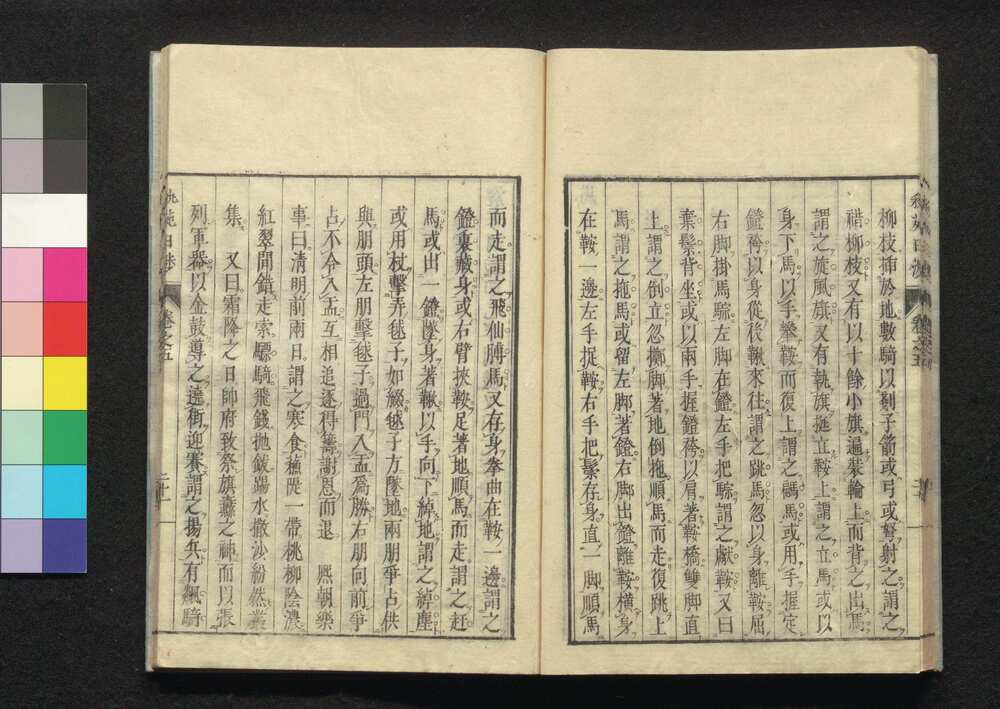 柳枝插於地數騎以剗子箭或弓或弩射之謂之
䄍柳枝又有以十餘小旗遍裝輪上而背之出馬
謂之旋風旗又有執旗挺立鞍上謂之立馬或以
身下馬以手攀鞍而復上謂之騗馬或用手握定
鐙袴以身從後鞦來往謂之跳馬忽以身離鞍屈
右脚掛馬騣左脚在鐙左手把騣謂之獻鞍又曰
棄鬃背坐或以兩手握鐙袴以肩著鞍橋雙脚直
上謂之倒立忽擲脚著地倒拖順馬而走復跳上
馬謂之拖馬或留左脚著鐙右脚出鐙離鞍橫身
在鞍一邊左手捉鞍右手把鬃存身直一脚順馬
而走謂之飛仙膊馬又存身拳曲在鞍一邊謂之
鐙裏藏身或右臂挾鞍足著地順馬而走謂之赶
馬或出一鐙墜身著鞦以手向下綽地謂之綽塵
或用杖擊弄毬子如綴毬子方墜地兩朋爭占供
與朋頭左朋擊毬子過門入盂爲勝右朋向前爭
占不令入盂互相追逐得籌謝恩而退 熈朝樂
事曰淸明前兩日謂之寒食蘓隄一帶桃柳陰濃
紅翠間錯走索驃騎飛錢抛鈸踢水撒沙紛然叢
集 又曰霜降之日帥府致祭旗纛之神而以張
列軍器以金鼓導之遶街迎賽謂之揚兵有飆騎
卷之五